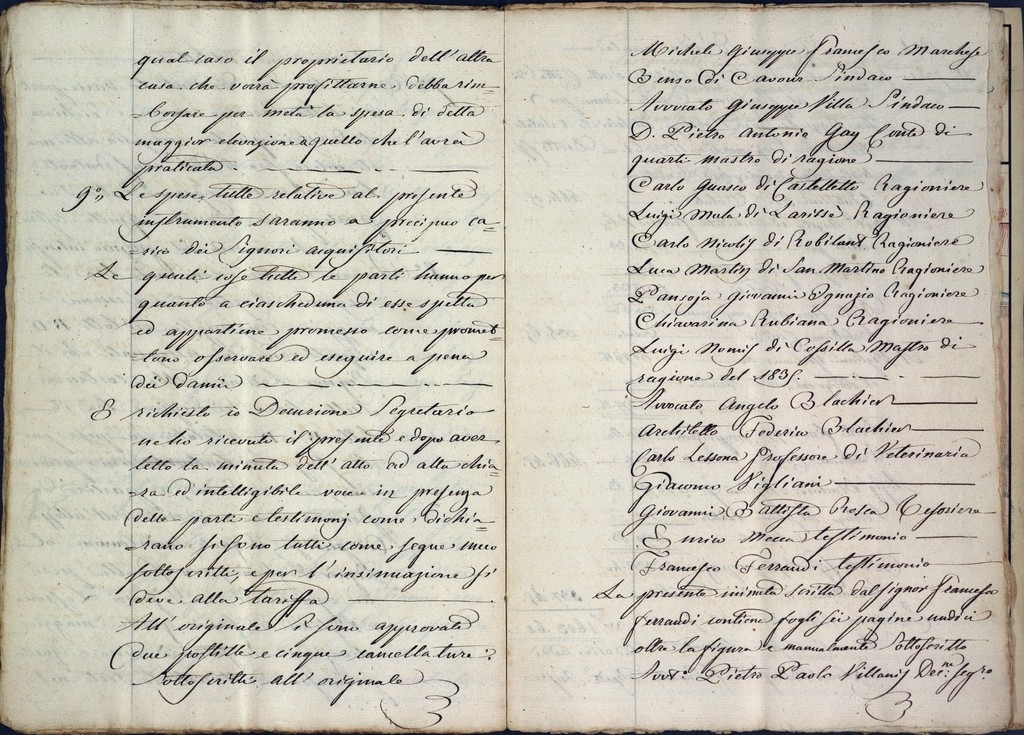 qual caso il proprietario dell'altra
casa che vorrà profittarne, debba rim=
=borsare per metà la spesa di detta
maggior elevazione a quello che l'avrà
praticata.
9.° Le spese tutte relative al presente
instrumento saranno a precipuo ca=
=rico dei Signori acquisitori
Le quali cose tutte le parti hanno per
quanto a ciascheduna di esse spetta
ed appartiene promesso come promet=
=tono osservare ed eseguire a pena
dei danni
E richiesto io Decurione Segretario
ne ho ricevuto il presente e dopo aver
letto la minuta dell'atto ad alta chia=
=ra ed intelligibile voce in presenza
delle parti e testimonj come dichia=
=rano si sono tutti come segue meco
sottoscritti, e per l'insinuazione si
deve alla tariffa
All'originale si sono approvate
due postille e cinque cancellature:
Sottoscritti all'originale
Michele Giuseppe Francesco Marchese
Benso di Cavour Sindaco
Avvocato Giuseppe Villa Sindaco
D. Pietro Antonio Gay Conte di
quarti mastro di ragione
Carlo Guasco di Castelletto Ragioniere
Luigi Mula di Larissè Ragioniere
Carlo Nicolis di Robilant Ragioniere
Luca Martin di San Martino Ragioniere
Pansoja Giovanni Ignazio Ragioniere
Chiavarina Rubiana Ragioniere
Luigi Nomis di Cossilla Mastro di
ragione del 1835.
Avvocato Angelo Blachier
Architetto Federico Blachier
Carlo Lessona Professore di Veterinaria
Giacomo Vigliani
Giovanni Battista Presca Tesoriere
Enrico Mecca testimonio
Francesco Ferrandi testimonio
La presente minuta scritta dal Signor Francesco
Ferrandi contiene fogli sei pagine undici
oltre la figura e manualmente sottoscritto
Avv.to Pietro Paolo Villanis Dec.ne Seg.ro